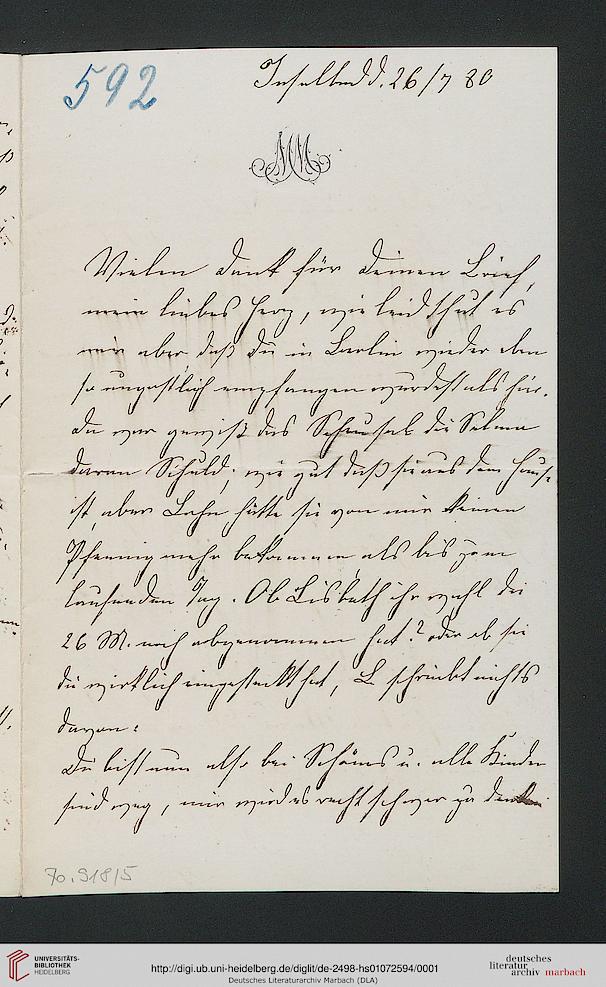 592
Inselbad d. 26/7 80
MM
Vielen Dank für Deinen Brief,
mein liebes Herz, wie leid thut es
mir aber daß Du in Berlin wieder eben
so ungastlich empfangen wurdest als hier.
Da war gewiß das Scheusal die Selma
daran Schuld; wie gut daß sie aus dem Hause
ist, aber Lohn hätte sie von mir keinen
Pfennig mehr bekommen als bis zum
laufenden Tag. Ob Lisbeth ihr wohl die
26 M. noch abgenommen hat? oder ob sie
die wirklich eingesteckt hat, L. schreibt nichts
davon.
Du bist nun also bei Schöns u. alle Kinder
sind weg, mir wird es recht schwer zu denken
70.918/5
UNIVERSITÄTS-
BIBLIOTHEK
HEIDELBERG
http://digi.ub.uni-heidelberg.de/diglit/de-2498-hs01072594/0001
Deutsches Literaturarchiv Marbach (DLA)
deutsches
literatur
archiv marbach